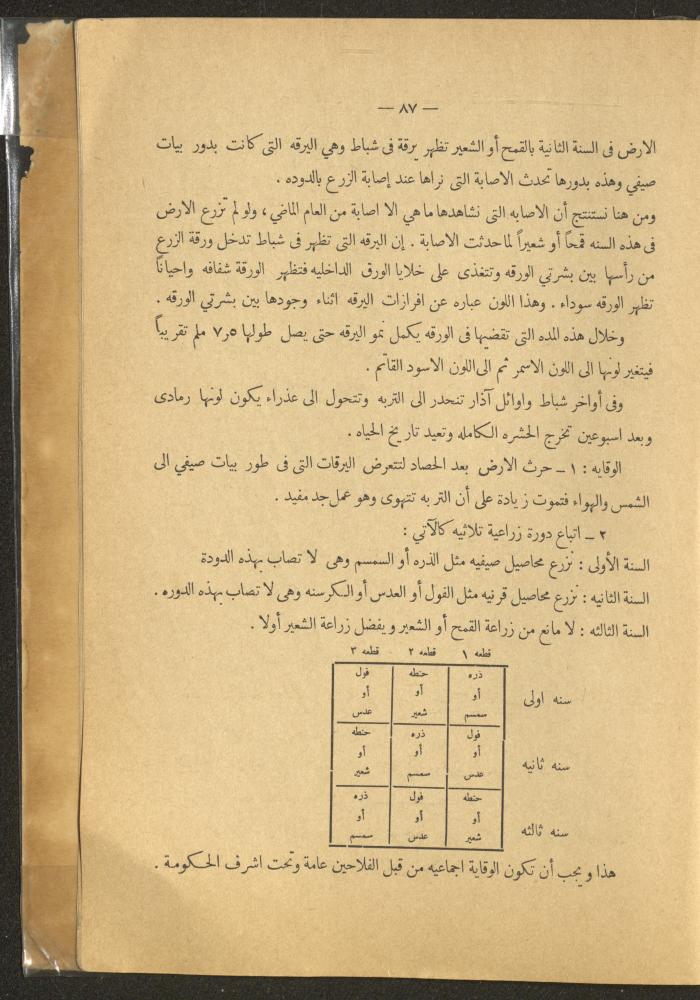 — ٨٧ —
الارض فى السنة الثانية بالقمح أو الشعير تظهر يرقة فى شباط وهي اليرقه التى كانت بدور بيات
صيفي وهذه بدورها تحدث الاصابة التى نراها عند إصابة الزرع بالدوده .
ومن هنا نستنتج أن الاصابه التى نشاهدها ما هي الا اصابة من العام الماضي ، ولو لم تزرع الارض
فى هذه السنه قمحاً أو شعيراً لما حدثت الاصابة . إن اليرقه التى تظهر فى شباط تدخل ورقة الزرع
من رأسها بين بشرتي الورقه وتتغذى على خلايا الورق الداخليه فتظهر الورقة شفافه واحياناً
تظهر الورقه سوداء . وهذا اللون عباره عن افرازات اليرقه اثناء وجودها بين بشرتي الورقه .
وخلال هذه المده التى تقضيها فى الورقه يكمل نمو اليرقه حتى يصل طولها ٧٫٥ ملم تقريباً
فيتغير لونها الى اللون الاسمر ثم الى اللون الاسود القاتم .
وفى أواخر شباط واوائل آذار تنحدر الى التربه وتتحول الى عذراء يكون لونها رمادى
وبعد اسبوعين تخرج الحشره الكامله وتعيد تاريخ الحياه .
الوقايه : ١ ــ حرث الارض بعد الحصاد لتتعرض اليرقات التى فى طور بيات صيفي الى
الشمس والهواء فتموت زيادة على أن التربه تتهوى وهو عمل جد مفيد .
٢ ــ اتباع دورة زراعية ثلاثيه كالآتي :
السنة الأولى : نزرع محاصيل صيفيه مثل الذره أو السمسم وهى لا تصاب بهذه الدودة
السنة الثانيه : نزرع محاصيل قرنيه مثل الفول أو العدس أو الكرسنه وهى لا تصاب بهذه الدوره .
السنة الثالثه : لا مانع من زراعة القمح أو الشعير ويفضل زراعة الشعير أولا .
قطعه ١ قطعه ٢ قطعه ٣
ذره حنطه فول
سنه اولى أو أو أو
سمسم شعير عدس
فول ذره حنطه
سنه ثانيه أو أو أو
عدس سمسم شعير
حنطه فول ذره
سنه ثالثه أو أو أو
شعير عدس سمسم
هذا ويجب أن تكون الوقاية اجماعيه من قبل الفلاحين عامة وتحت اشرف الحكومة .